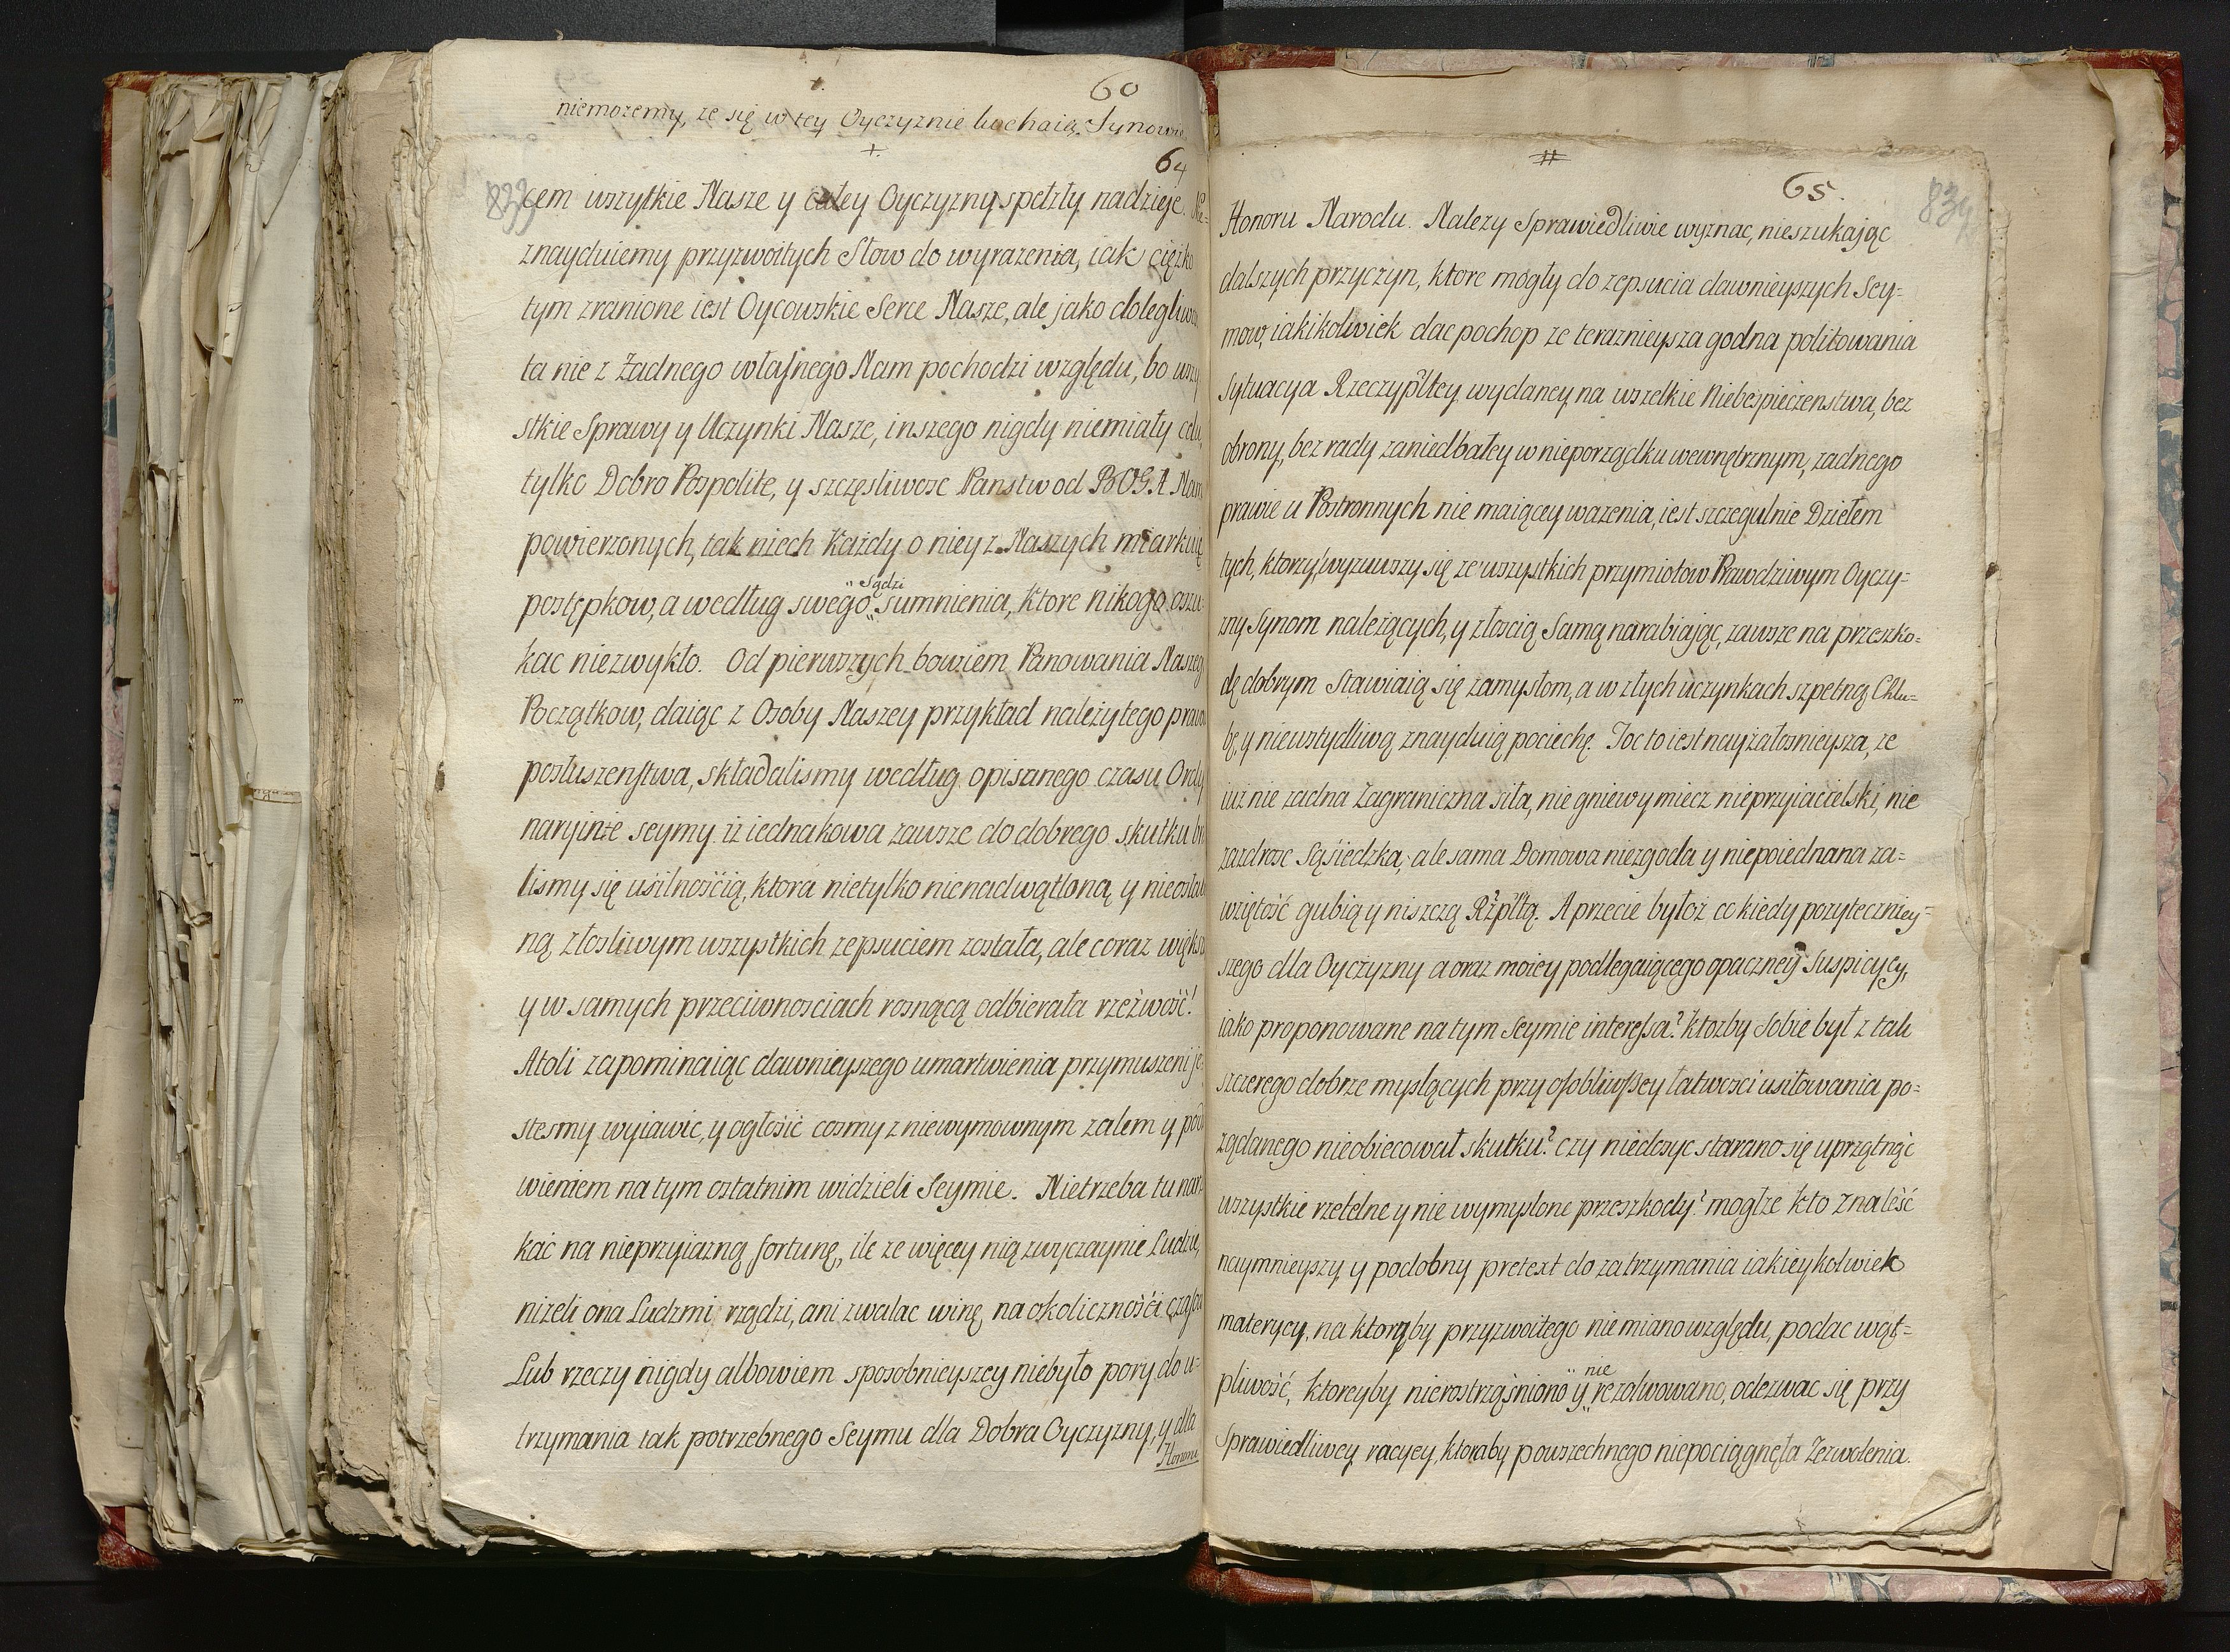 60
niemozemy, ze się w tey Oyczyznie kochaią, Synowie
64
833
cem wszytkie Nasze y całey Oyczyzny spełzły nadzieje. Nie-
znayduiemy przyzwoitych Słow do wyrazenia, iak cięzko
tym zranione iest Oycowskie Serce Nasze, ale jako dolegliwo
ta nie z Żadnego własnego Nam pochodzi względu, bo wszy
stkie Sprawy y Uczynki Nasze, inszego nigdy niemiały celu,
tylko Dobro Pospolite, y szczęsliwosc Panstw od BOGA Nam
powierzonych, tak niech Każdy o niey z Naszych miarkuię
postępkow, a według swego „sądzi„ sumnienia, Ktore nikogo oszu-
kac niezwykło. Od pierwszych bowiem Panowania Naszeg
Początkow, daiąc z Osoby Naszey przykład należytego prawo
posłuszenstwa, składalismy według opisanego czasu Ordy
naryine seymy iz iednakowa zawsze do dobrego skutku br
lismy się usilnoscią, ktora nietylko nienadwątloną y nieosłab
ną złosliwym wszystkich zepsuciem została, ale coraz więks
y w samych przeciwnosciach rosnącą odbierała rzeżwość!
Atoli zapominaiąc dawnieyszego umartwienia przymuszeni je-
stesmy wyiawic, y ogłosić cosmy z niewymownym zalem y pod
wieniem na tym ostatnim widzieli Seymie. Nietrzeba tu nar-
kać na nieprzyiazną fortunę, ile ze więcey nią zwyczaynie Ludzie,
nizeli ona Ludzmi rządzi, ani zwalac winę na okolicznośći czasu
Lub rzeczy nigdy albowiem sposobnieyszey niebyło pory do u-
trzymania tak potrzebnego Seymu dla Dobra Oyczyzny, y dla
Honoru
65.
834
Honoru Narodu. Nalezy Sprawiedliwie wyznac, nieszukając
dalszych przyczyn, ktore mogły do zepsucia dawnieyszych Sey-
mow, iakikolwiek dac pochop ze teraznieysza godna politowania
Sytuacya Rzeczypltey wydaney na wszelkie Niebespieczenstwa, bez
obrony, bez rady zaniedbałey w nieporządku wewnętrznym, zadnego
prawie u Postronnych nie maiącey wazenia, iest szczegulnie Dziełem
tych, ktorzy wyzuwszy się ze wszystkich przymiotow Prawdziwym Oyczy-
zny Synom należących, y złoscią Samą narabiając, zawsze na przeszko-
dę dobrym Stawiaią się zamysłom, a w złych uczynkach szpetną Chlu-
bę, y niewstydliwą znayduią pociechę. Toc to iest nayżałosnieysza, ze
iuż nie zadna Zagraniczna siła, nie gniewy miecz nieprzyiacielski, nie
zazdrosc Sąsiedzka, ale sama Domowa niezgoda y niepoiednana za-
wziętość gubią y niszczą Rzpltą. A przecie byłoż co kiedy pozyteczniey-
szego dla Oyczyzny a oraz mniey podlegaiącego opaczney Suspicyey,
iako proponowane na tym Seymie interessa? ktozby Sobie był z tak
szczerego dobrze myslących przy osobliwszey łatwosci usiłowania po-
ządanego nieobiecował skutku? czy niedosyc starano się uprzątnąć
wszystkie rzetelne y nie wymyslone przeszkody? mogłze kto znaleść
naymnieyszy y podobny pretext do zatrzymania iakieykolwiek
materyey, na ktorąby przyzwoitego nie miano względu, podac wąt-
pliwość, ktoreyby nieroztrząśniono y „nie„ rezolwowano, odezwac się przy
Sprawiedliwey racyey, ktoraby powszechnego niepociągnęła Zezwolenia.